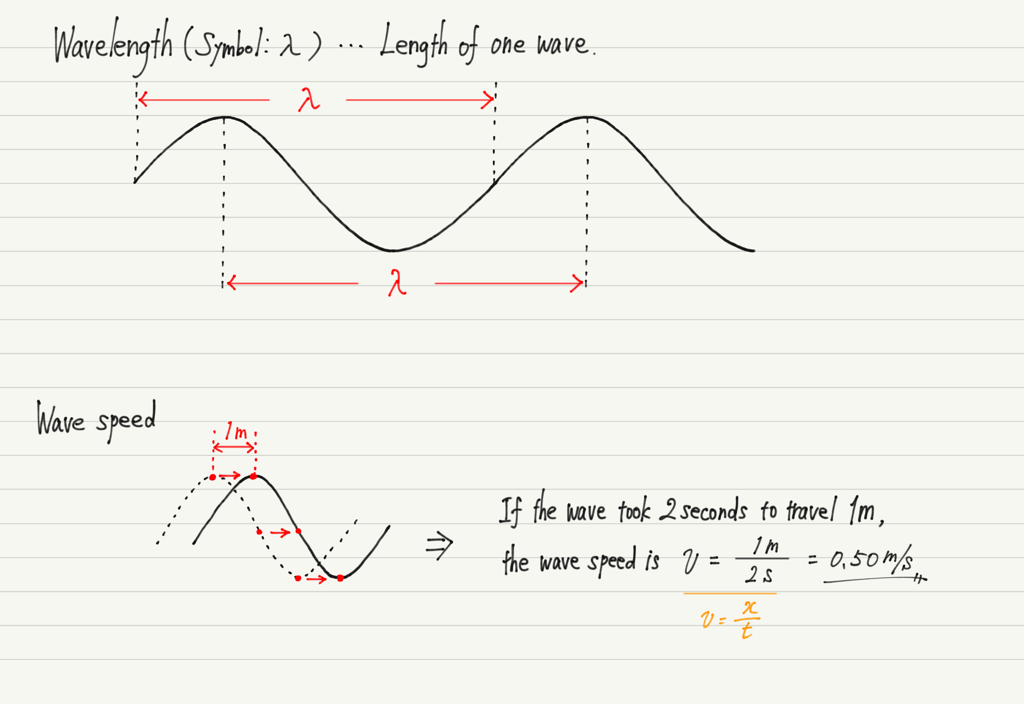 Wavelength (Symbol: λ) ... Length of one wave.
λ
λ
Wave speed
1m
⇒ If the wave took 2 seconds to travel 1m,
the wave speed is v = 1m/2s = 0.50 m/s
v = x/t